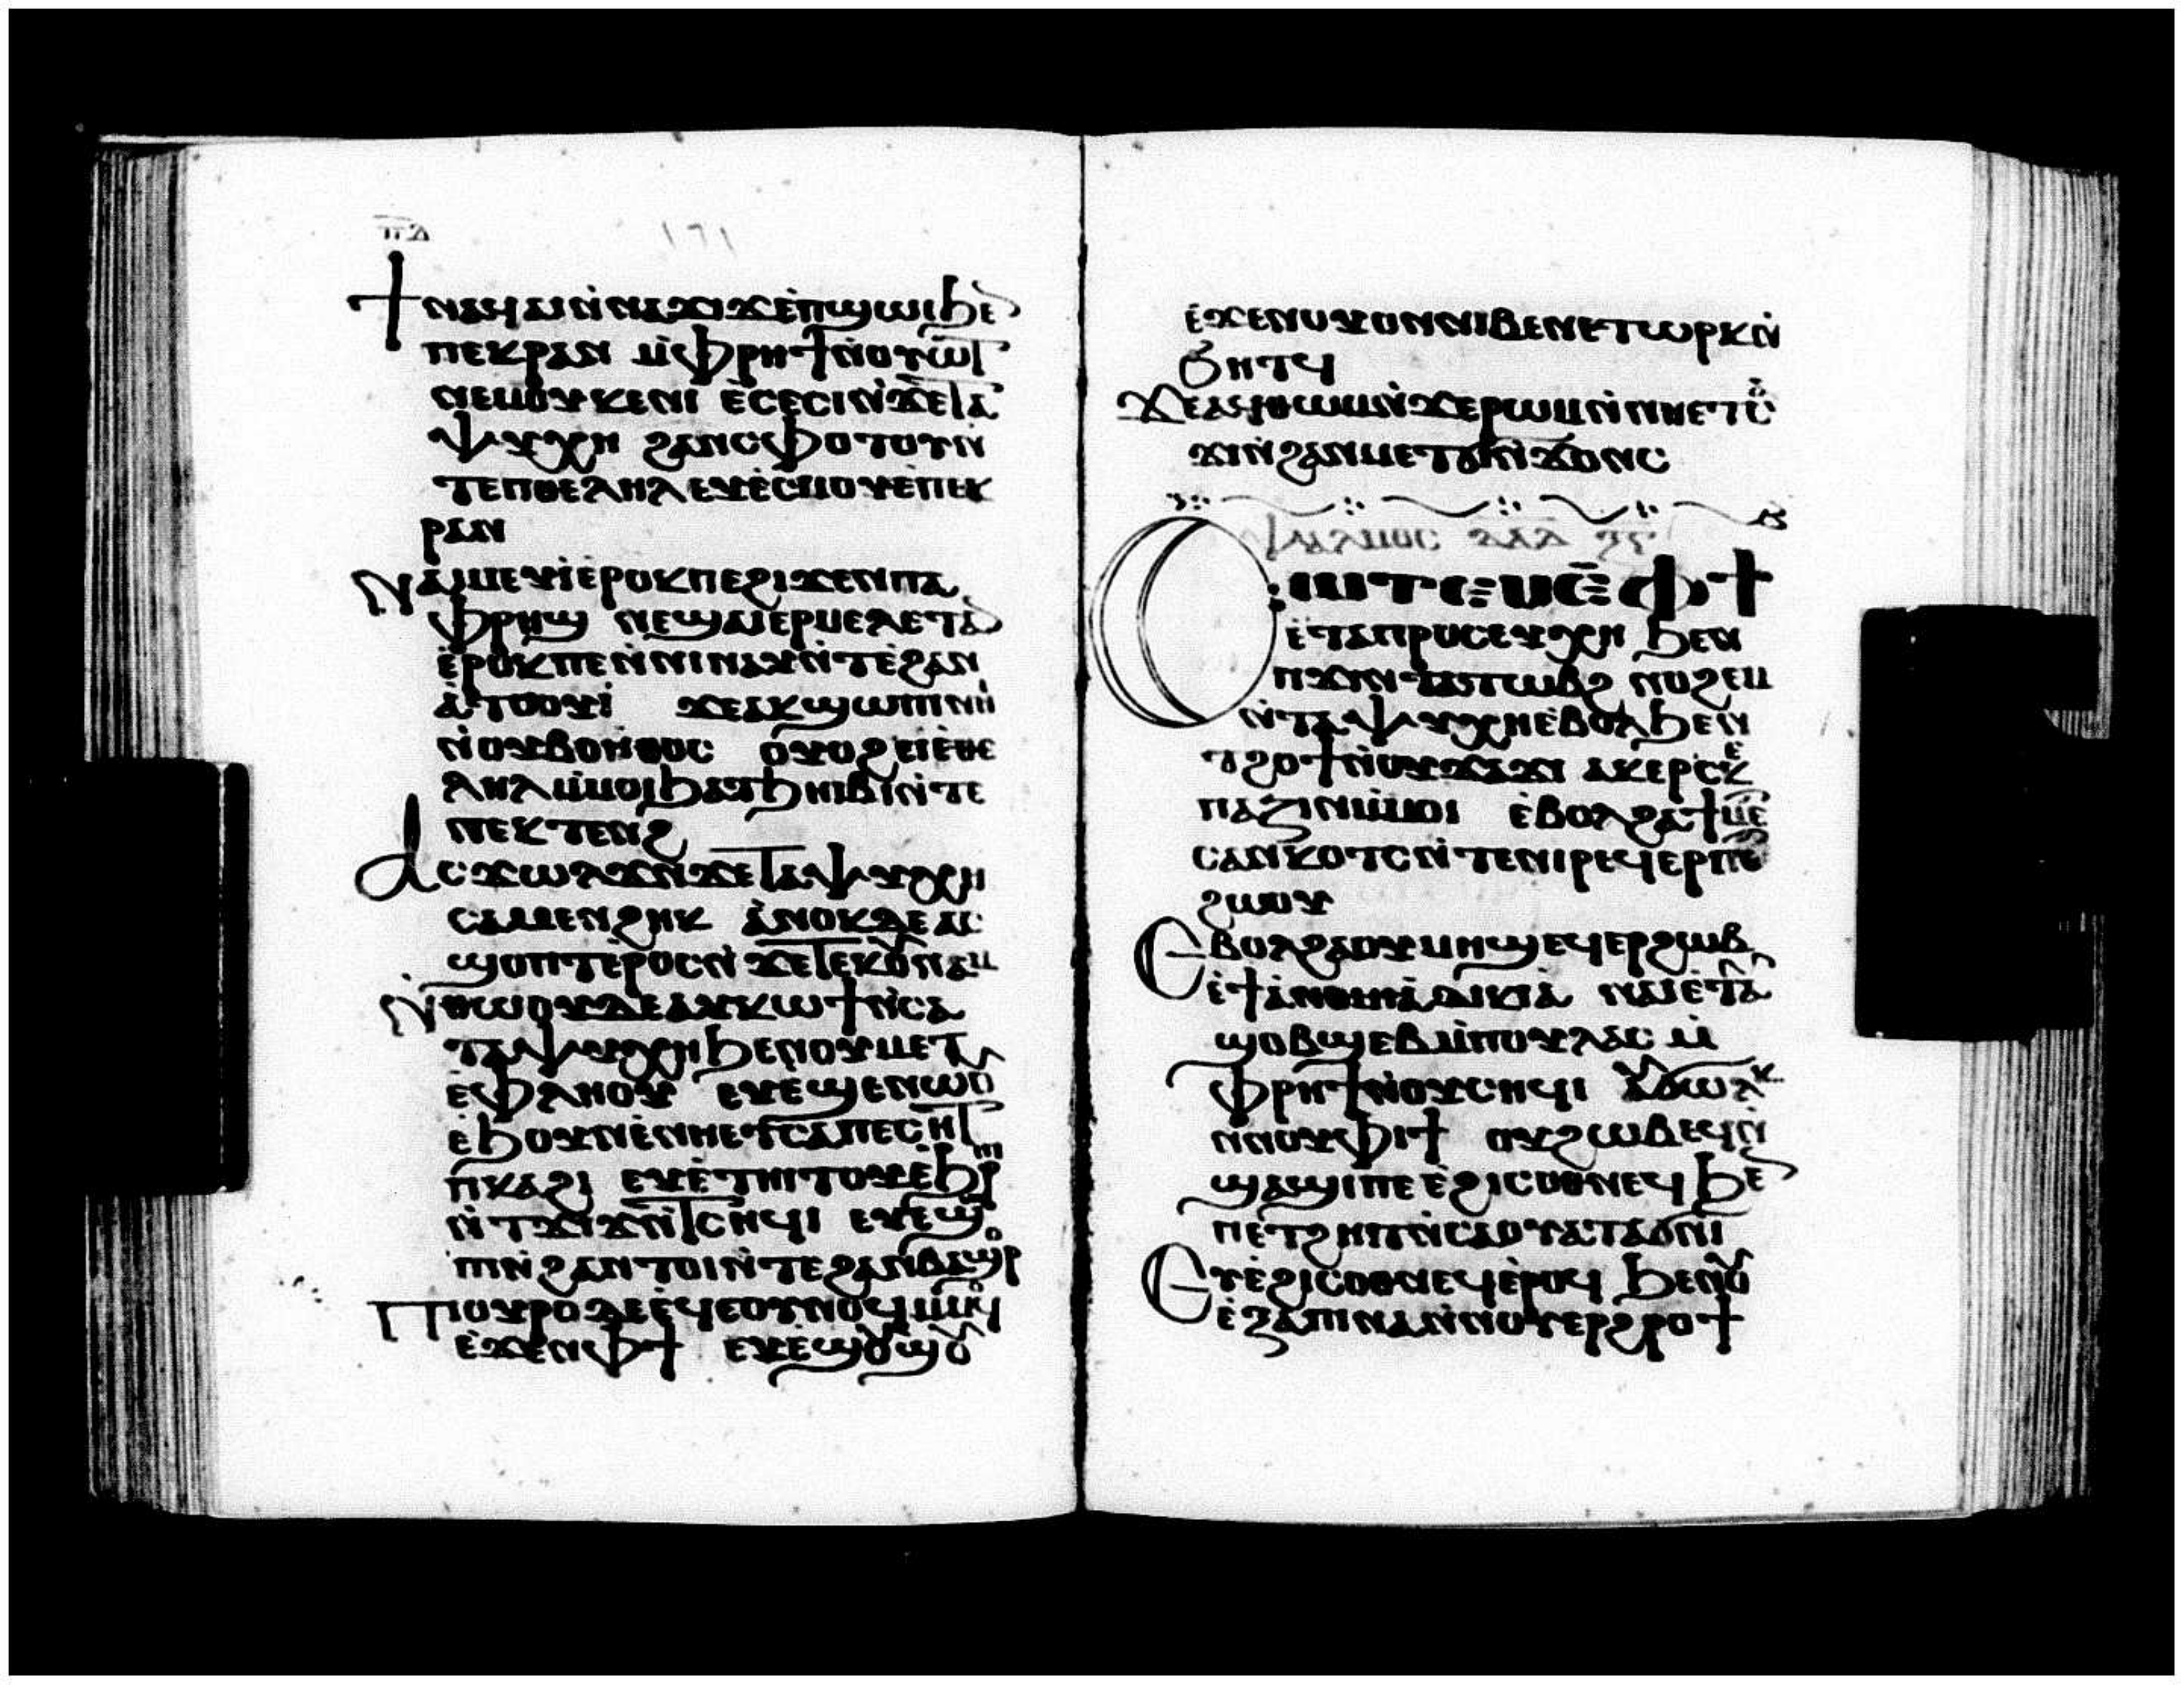 ⲡⲇ
171
ϯⲛⲁϥⲁⲓⲛ̀ⲛⲁϫⲓϫⲉ̀ⲡϣⲱⲓϧⲉ
ⲡⲉⲕⲣⲁⲛ ⲙ̀ⲫⲣⲏϯⲛ̀ⲟⲩⲱⲧ
ⲛⲉⲙⲟⲩⲕⲉⲛⲓ ⲉ̀ⲥⲉⲥⲓⲛ̀ϫⲉⲧⲁ
ⲯⲩⲭⲏ ϩⲁⲛⲥⲫⲟⲧⲟⲩⲛ̀
ⲧⲉⲡⲑⲉⲗⲏⲗ ⲉⲩⲉ̀ⲥⲙⲟⲩⲉ̀ⲡⲉⲕ
ⲣⲁⲛ
ⲛⲁⲓⲙⲉⲩⲓ̀ⲉⲣⲟⲕⲡⲉϩⲓϫⲉⲛⲡⲁ
ⲫⲣⲏϣ ⲛⲉϣⲁⲓⲉⲣⲙⲉⲗⲉⲧⲁ
ⲉ̀ⲣⲟⲕⲡⲉⲛ̀ⲛⲓⲛⲁⲩⲛ̀ⲧⲉϩⲁⲛ
ⲁ̀ⲧⲟⲟⲩⲓ̀ ϫⲉⲁⲕϣⲱⲡⲓⲛⲏⲓ
ⲛ̀ⲟⲩⲃⲟⲏⲑⲟⲥ ⲟⲩⲟϩⲉⲓⲉ̀ⲑⲉ
ⲗⲏⲗⲙ̀ⲙⲟⲓϧⲁⲧϧⲏⲓⲃⲓⲛ̀ⲧⲉ
ⲛⲉⲕⲧⲉⲛϩ
ⲁⲥϫⲱⲗϫⲛ̀ϫⲉⲧⲁⲯⲩⲭⲏ
ⲥⲁⲙⲉⲛϩⲏⲕ ⲁ̀ⲛⲟⲕⲇⲉⲁⲥ
ϣⲟⲡⲧⲉ̀ⲣⲟⲥⲛ̀ϫⲉⲧⲉⲕⲟⲩⲓⲛⲁⲙ
ⲛ̀ⲑⲱⲟⲩⲇⲉⲁⲩⲕⲱϯⲛ̀ⲥⲁ
ⲧⲁⲯⲩⲭⲏϧⲉⲛⲟⲩⲙⲉⲧ
ⲉ̀ⲫⲗⲏⲟⲩ ⲉⲩⲉ̀ϣⲉⲛⲱⲟⲩ
ⲉ̀ϧⲟⲩⲛⲉ̀ⲛⲏⲉⲧⲥⲁⲡⲉⲥⲏⲧ
ⲡⲕⲁϩⲓ ⲉⲩⲉ̀ⲧⲏⲓⲧⲟⲩⲉ̀ϧⲣⲏ
ⲛ̀ⲧϫⲓϫⲛ̀ⲧⲥⲏϥⲓ ⲉⲩⲉϣⲱ
ⲡⲓⲛ̀ϩⲁⲛⲧⲟⲓⲛ̀ⲧⲉϩⲁⲛⲃⲁϣⲟⲣ
ⲡⲓⲟⲩⲣⲟⲇⲉⲉ̀ϥⲉⲟⲩⲛⲟϥⲙ̀ⲙⲟϥ
ⲉ̀ϫⲉⲛⲫϯ ⲉⲩⲉ̀ϣⲟⲩϣⲟⲩ
ⲉ̀ϫⲉⲛⲟⲩⲟⲛⲛⲓⲃⲉⲛⲉⲧⲱⲣⲕⲛ̀
ϧⲏⲧϥ
ϫⲉⲁϥⲑⲱⲙⲛ̀ϫⲉⲣⲱⲙⲛ̀ⲛⲏⲉⲧⲥ
ϫⲓⲛ̀ϩⲁⲛⲙⲉⲧϭⲓⲛ̀ϫⲟⲛⲥ
ⲯⲁⲗⲙⲟⲥ ⲇⲁⲇ ⲝⲅ
ⲥⲱⲧⲉⲙⲉ̄ ⲫϯ
ⲉ̀ⲧⲁⲡⲣⲟⲥⲉⲩⲭⲏ ϧⲉⲛ
ⲡϫⲓⲛⲧⲁⲧⲱⲃϩ ⲛⲟϩⲉⲙ
ⲛ̀ⲧⲁⲯⲩⲭⲏⲉ̀ⲃⲟⲗϧⲉⲛ
ⲧϩⲟϯⲛ̀ⲟⲩϫⲁϫⲓ ⲁⲕⲉⲣⲥⲕⲉ
ⲡⲁⲍⲓⲛⲙ̀ⲙⲟⲓ ⲉ̀ⲃⲟⲗϩⲁϯⲙⲉ
ⲥⲁⲛⲕⲟⲧⲥⲛ̀ⲧⲉⲛⲓⲣⲉϥⲉⲣⲡⲉ
ϩⲱⲟⲩ
ⲉⲃⲟⲗϩⲁⲟⲩⲙⲏϣⲉϥⲉⲣϩⲱⲃ
ⲉ̀ϯⲁ̀ⲛⲟⲙⲓⲁ̀ⲇⲓⲕⲓⲁ̀ ⲛⲁⲓⲉ̀ⲧⲁⲩ
ϣⲟⲃϣⲉⲃⲙ̀ⲡⲟⲩⲗⲁⲥ ⲙ̀
ⲫⲣⲏϯⲛ̀ⲟⲩⲥⲏϥⲓ ⲁⲩϭⲱⲗⲕ
ⲛ̀ⲛⲟⲩⲫⲓϯ ⲟⲩϩⲱⲃⲉϥⲛ̀
ϣⲁϣⲓⲡⲉ ⲉ̀ϩⲓⲥⲟⲑⲛⲉϥ ϧⲉ
ⲡⲉⲧϩⲏⲡⲛ̀ⲥⲁⲟⲩⲁⲧⲁϭⲛⲓ
ⲉⲩⲉ̀ϩⲓⲥⲟⲑⲛⲉϥⲉ̀ⲣⲟϥ ϧⲉⲛⲟⲩ
ⲉⲝⲁⲡⲓⲛⲁⲛ̀ⲛⲟⲩⲉⲣϩⲣⲟϯ